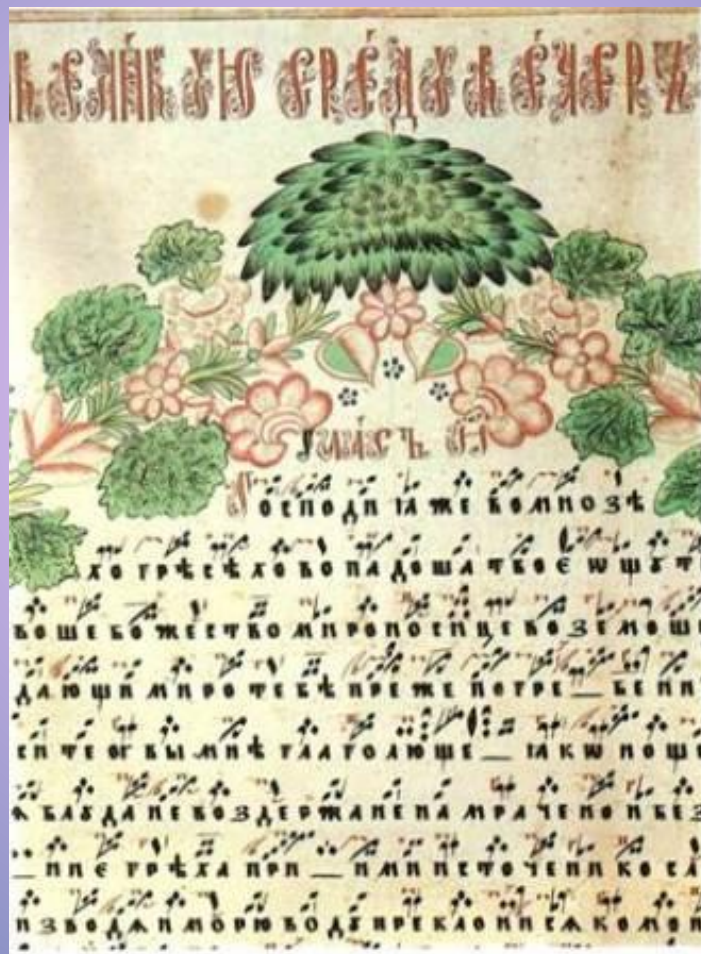 ВЕЛИ́КꙊЮ СРЕ́ДꙊ ВЕ́ЧЕРЪ
ГЛА́СЪ И҃
ГОСПОДИ ꙖЖЕ ВО МНОЗѢ
ХО ГРѢСѢХО ВОПАДОША ТВОЄ ѠЩꙊТ
ВОШЕ БОЖЕСТВО МИРОНОСИЦЕ ВОЗЕМОШЕ
ДАЮШИ МИРО ТЕБѢ ПРЕЖЕ ПОГРЕ — БЕНИ
БЫ МНѢ ГЛАГОЛЮШЕ — ꙖКѠ НОШЕ
БЛꙊДА НЕВОЗДЕРЖАНЕ НА МРАЧЕНО И БЕЗ
— НИЄ ГРѢХА ПРИ — ИМИ ИСТОЧЕНИКО СЛ
ИЗВОДѦИ МОРЮ ВОДꙊ ПРЕКЛОНИСѦ КО МО